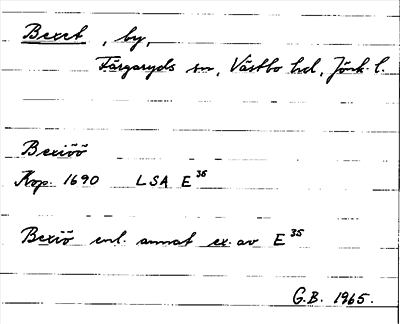 Bexet, by,
Färgaryds sn, Västbo hd, Jönk. l.
Bexiöö
Kop. 1690 LSA E 36
Bexiö enl. annat ex. av E 35
G.B. 1965.